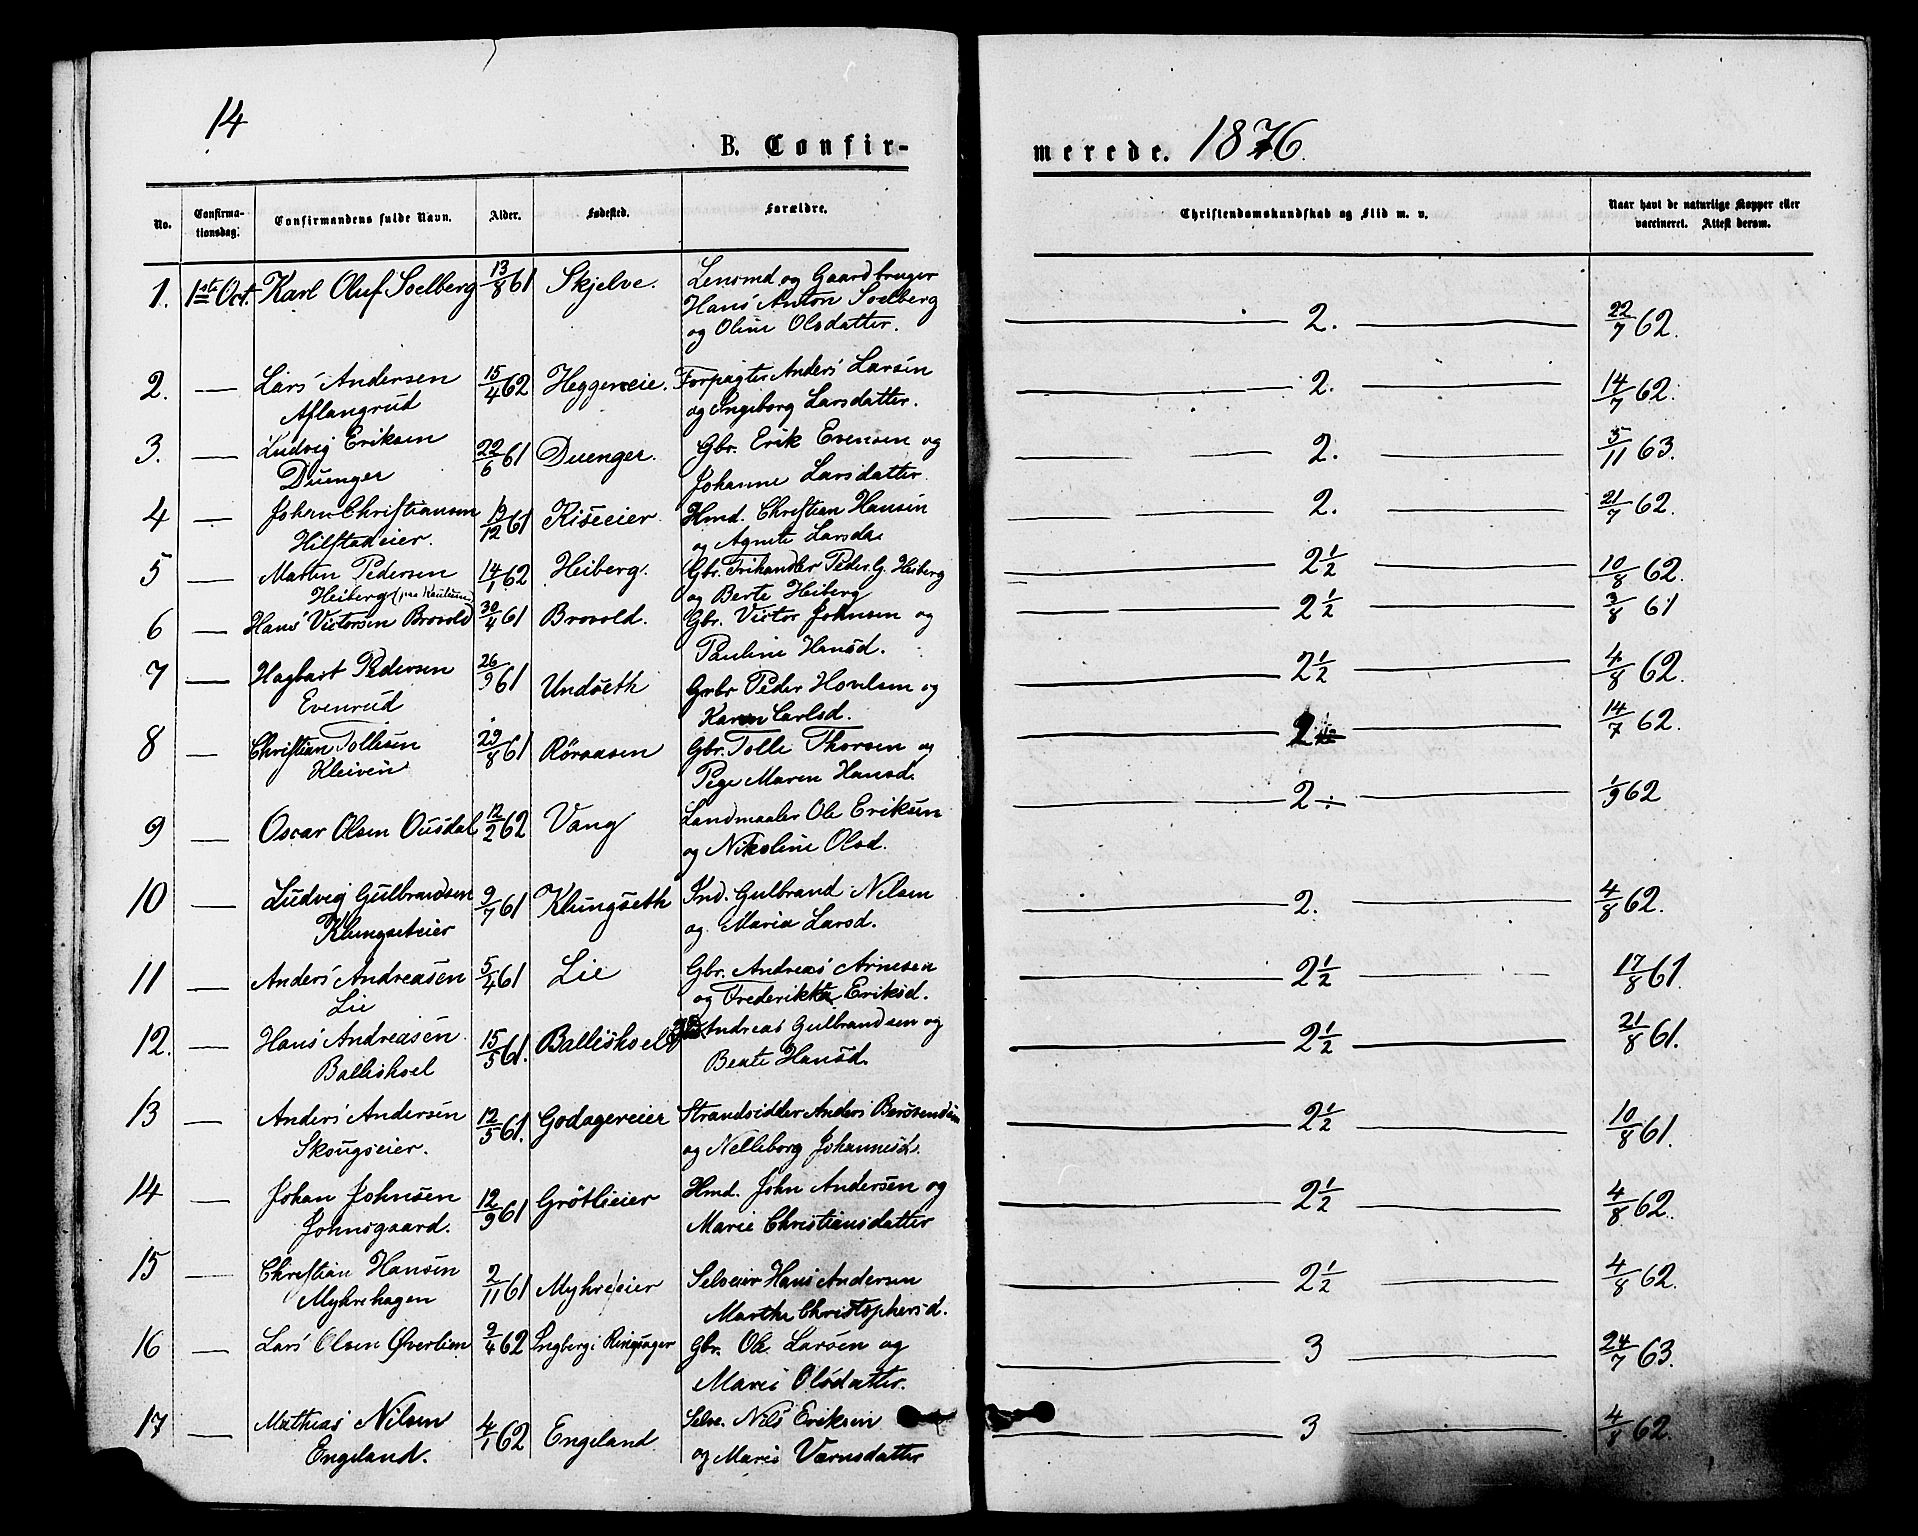 14
B. Confir-
merede. 1876.
No.
Confirma-
tionsdag.
Confirmandens fulde Navn.
Alder.
Fødested.
Forældre.
Christendomskundskab og Flid m. v.
Naar havt de naturlige Kopper eller
vaccineret. Attest derom.
1. 1ste Oct. Karl Oluf Soelberg 13/8 61 Skjelve. Lensmd og Gaardbruger
Hans Anton Soelberg
og Oline Olsdatter. 2. 22/7 62.
2. — Lars Andersen 15/4 62 Heggeneie. Forpagter Anders Larsen
Aflangrud og Ingeborg Larsdatter. 2. 14/7 62.
3. — Ludvig Eriksen 22/6 61 Duenger. Gbr. Erik Evensen og
Duenger Johanne Larsdatter. 2. 5/11 63.
4 — Johan Christiansen 19/12 61 Riseeier. Hmd. Christian Hansen
Hilstadeier. og Agnete Larsda 2. 21/7 62.
5 — Martin Pedersen 14/1 62 Heiberg. Gbr. Frihandler Peder G. Heiberg
Heiberg og Berte Heiberg 2½ 10/8 62.
6 — Hans Victorsen Brovold 30/4 61 Brovold. Gbr. Victor Johnsen og
Pauline Hansd. 2½ 3/8 61
7 — Hagbart Pedersen 26/9 61 Undseth Gbr Peder Hovelsen og
Evenrud Karen Carlsd. 2½ 4/8 62.
8 — Christian Tollesen 29/8 61 Röraasen Gbr. Tolle Thorsen og
Kleiven Pige Maren Hansd. 2 14/7 62.
9 — Oscar Olsen Ousdal 12/2 62 Vang Landmaaler Ole Eriksen
og Nikoline Olsd. 2 ÷ 1/9 62
10 — Ludvig Gulbrandsen 9/7 61 Klungseth Ind. Gulbrand Nilsen
Klungseteier og Maria Larsd. 2. 4/8 62.
11 — Anders Andreasen 5/4 61 Lie Gbr. Andreas Arnesen
Lie og Frederikka Eriksd. 2½ 17/8 61.
12. — Hans Andreasen 15/5 61. Ballishoel Andreas Gulbrandsen og
Ballishoel Beate Hansd. 2½ 21/8 61.
13 — Anders Andersen 12/5 61. Godagereier Strandsidder Anders Berntsen
Skougseier. og Nelleborg Johannesd. 2½ 10/8 61.
14 — Johan Johnsen 12/9 61 Grötlieier Hmd. John Andersen og
Johnsgaard. Marie Christiansdatter 2½ 4/8 62.
15 — Christian Hansen 2/11 61 Myhreeier Selveier Hans Andersen
Myhrehagen Marthe Christophersd. 2½ 4/8 62.
16 — Lars Olsen Øverlien 9/4 62 Engberg i Ringsager Gbr. Ole Larsen og
Marie Olsdatter. 3 24/7 63.
17 — Mathias Nilsen 4/1 62 Engeland Selve. Nils Eriksen
Engeland. og Marie Værnsdatter 3 4/8 62.